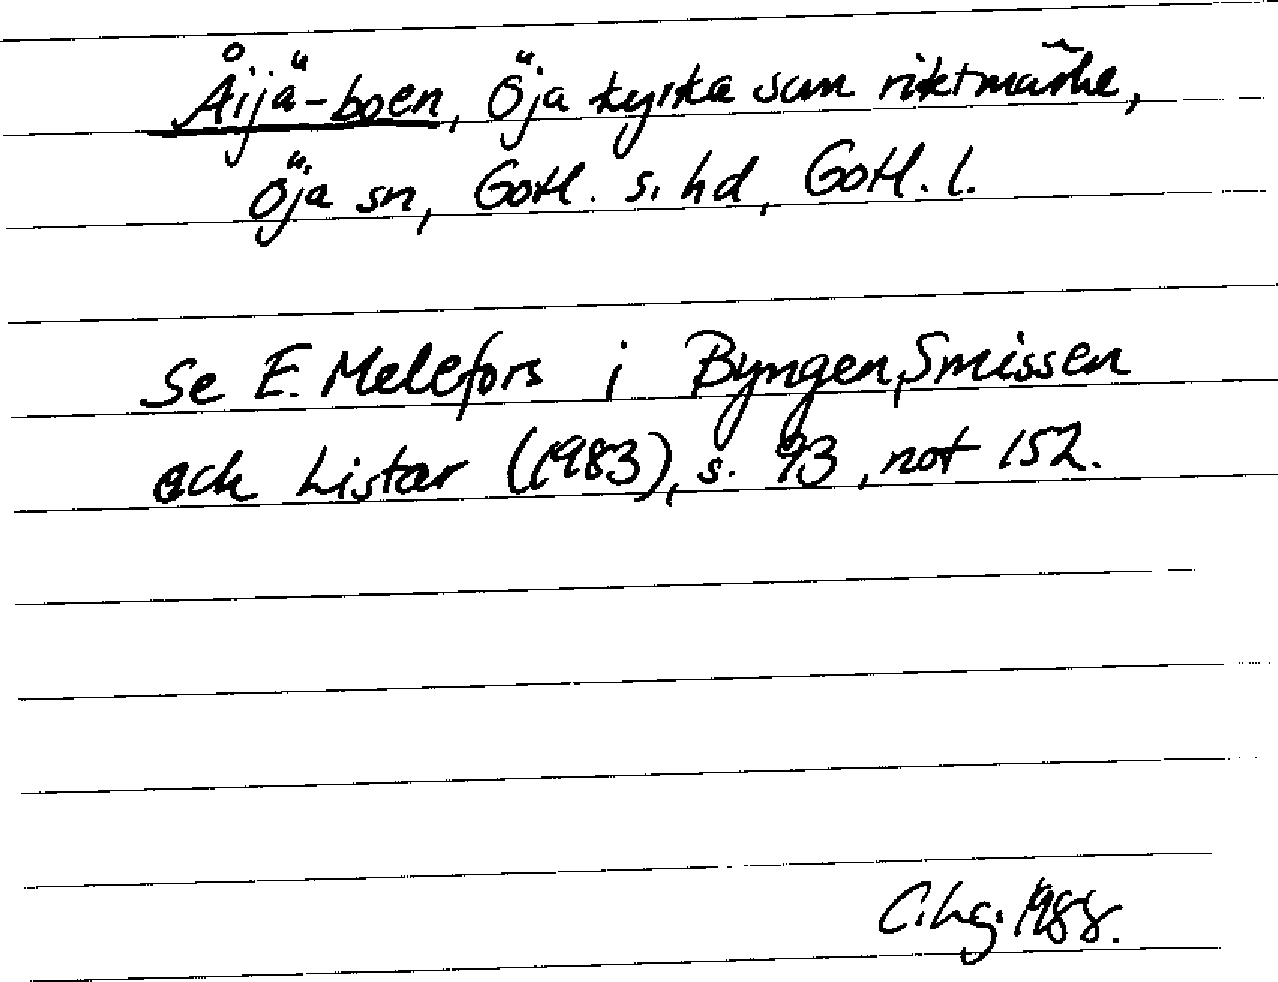 Åijä-boen, Öja kyrka som riktmärke,
Öja sn, Gotl. s. hd, Gotl. l.
Se E. Melefors i Byngen, Smissen
och Listar (1983), s. 93, not 152.
C.Lg. 1988.